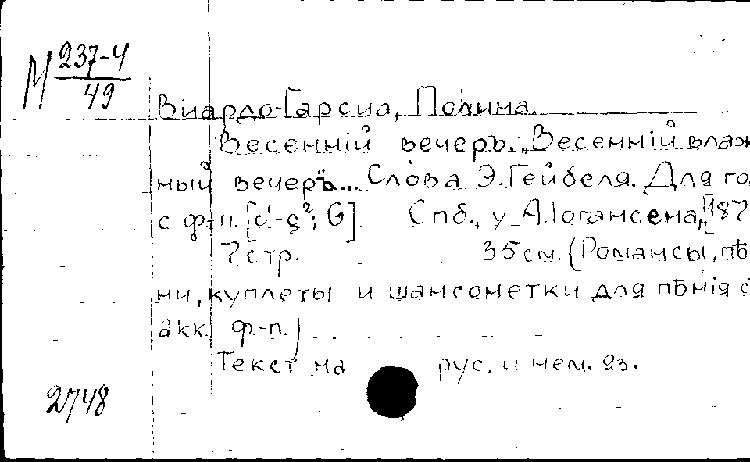 М 237-4
49
Виардо-Гарсиа, Полина.
Весеннiй вечеръ. „Весеннiй влаж
ный вечеръ"... Слова Э. Гейбеля. Для го
с ф-п. [d¹-g²; G]. Спб., у А. Iогансена, [187
7 стр. 35 см. (Романсы, пѣ
ни, куплеты и шансонетки для пѣнiя с
акк. ф-п.)
Текст на рус. и нем. яз.
2748